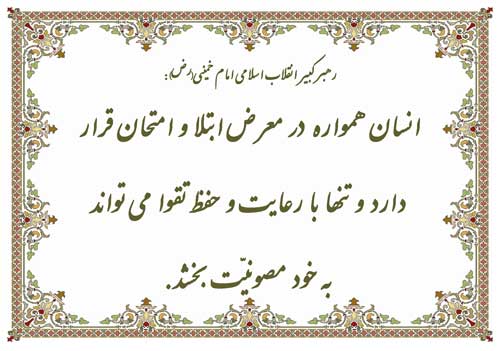 رهبر کبیر انقلاب اسلامی امام خمینی (رض):
انسان همواره در معرض ابتلا و امتحان قرار
دارد و تنها با رعایت و حفظ تقوا می تواند
به خود مصونیّت بخشد.